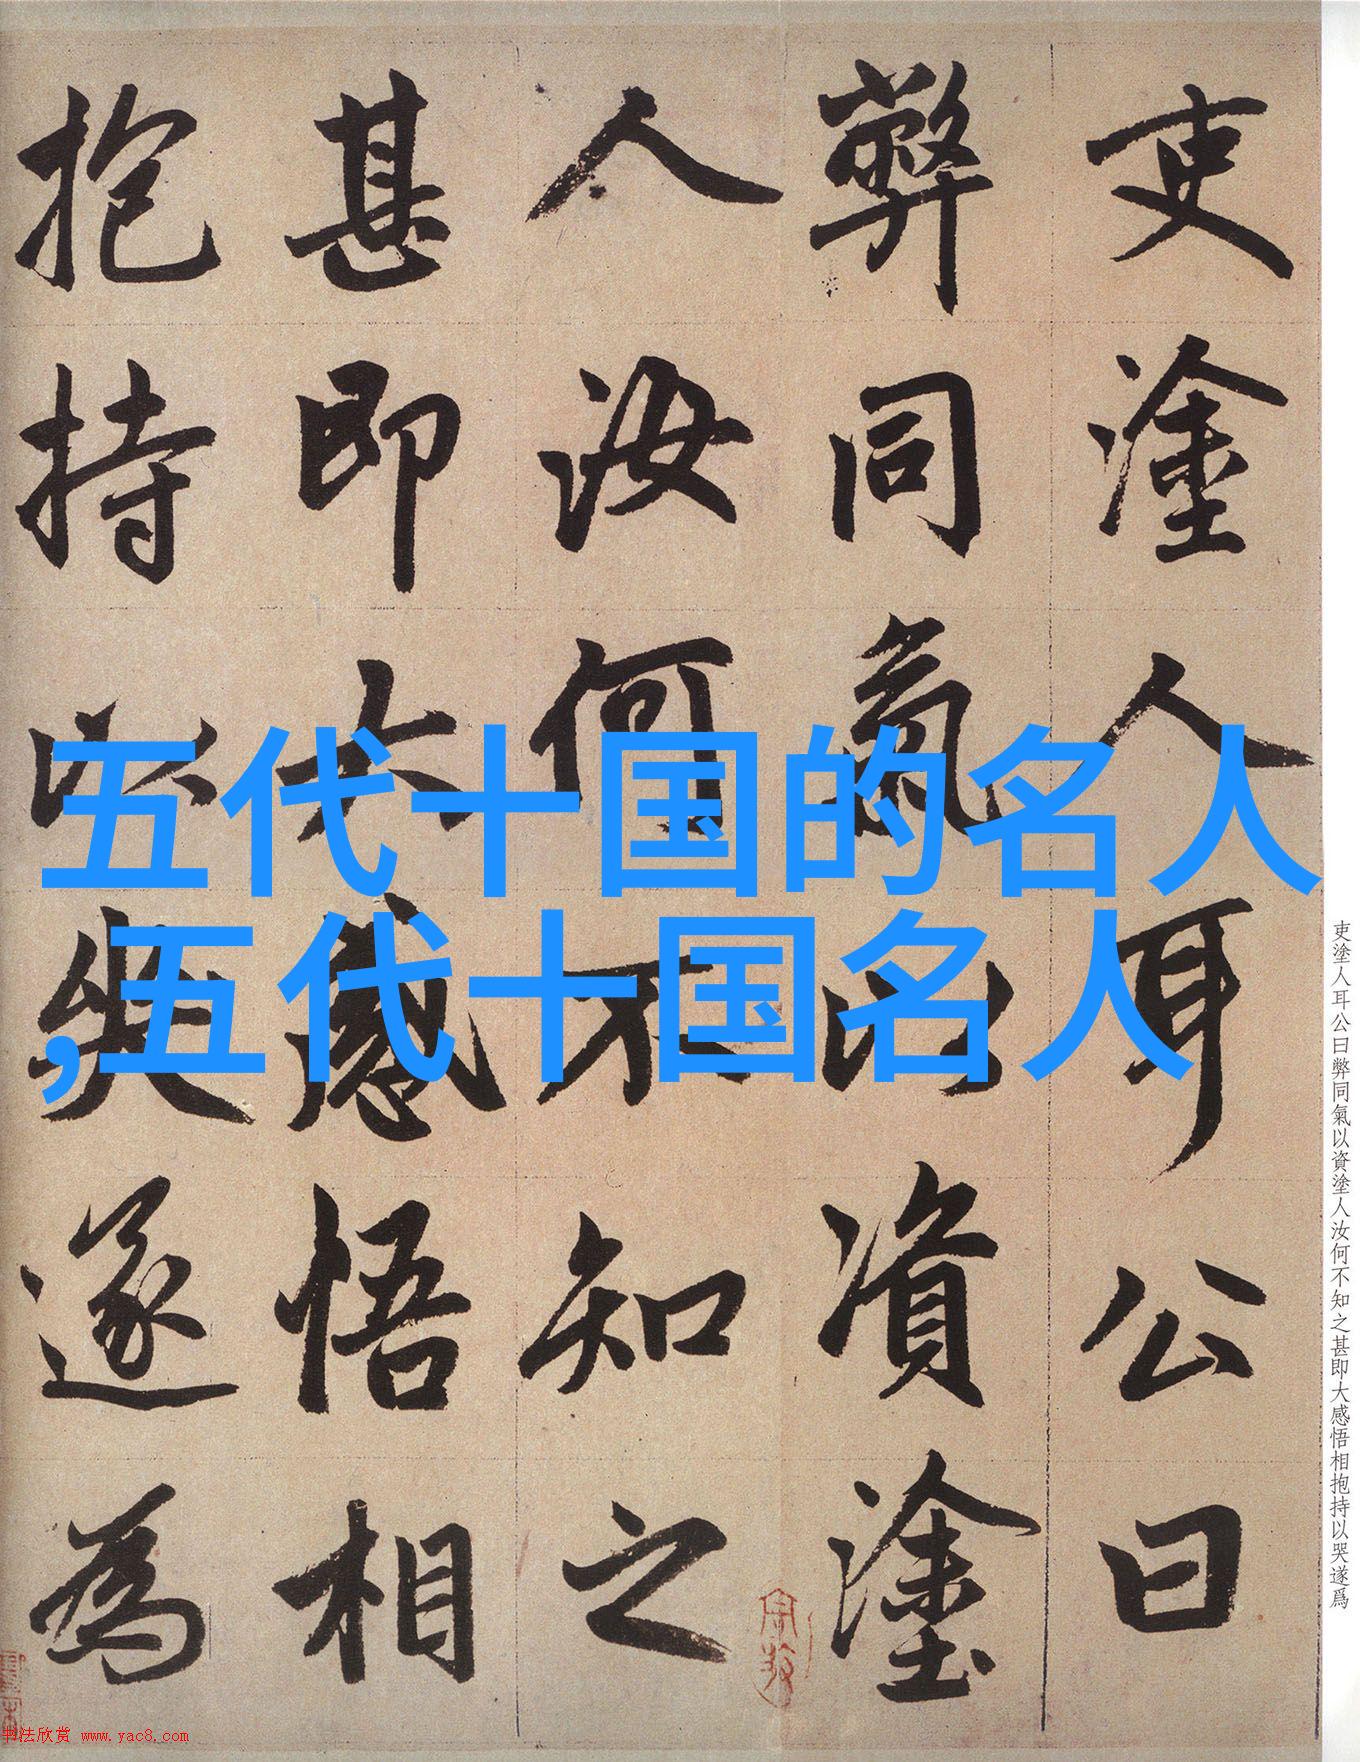 五代十国的名人
,五代十国名人
吏塗人耳公曰
弊同氣以資塗
人汝何不知之
甚即大感悟相
抱持以哭遂為
吏塗人耳公曰弊同氣以資塗人汝何不知之甚即大感悟相抱持以哭遂爲
书法欣赏 www.yac8.com